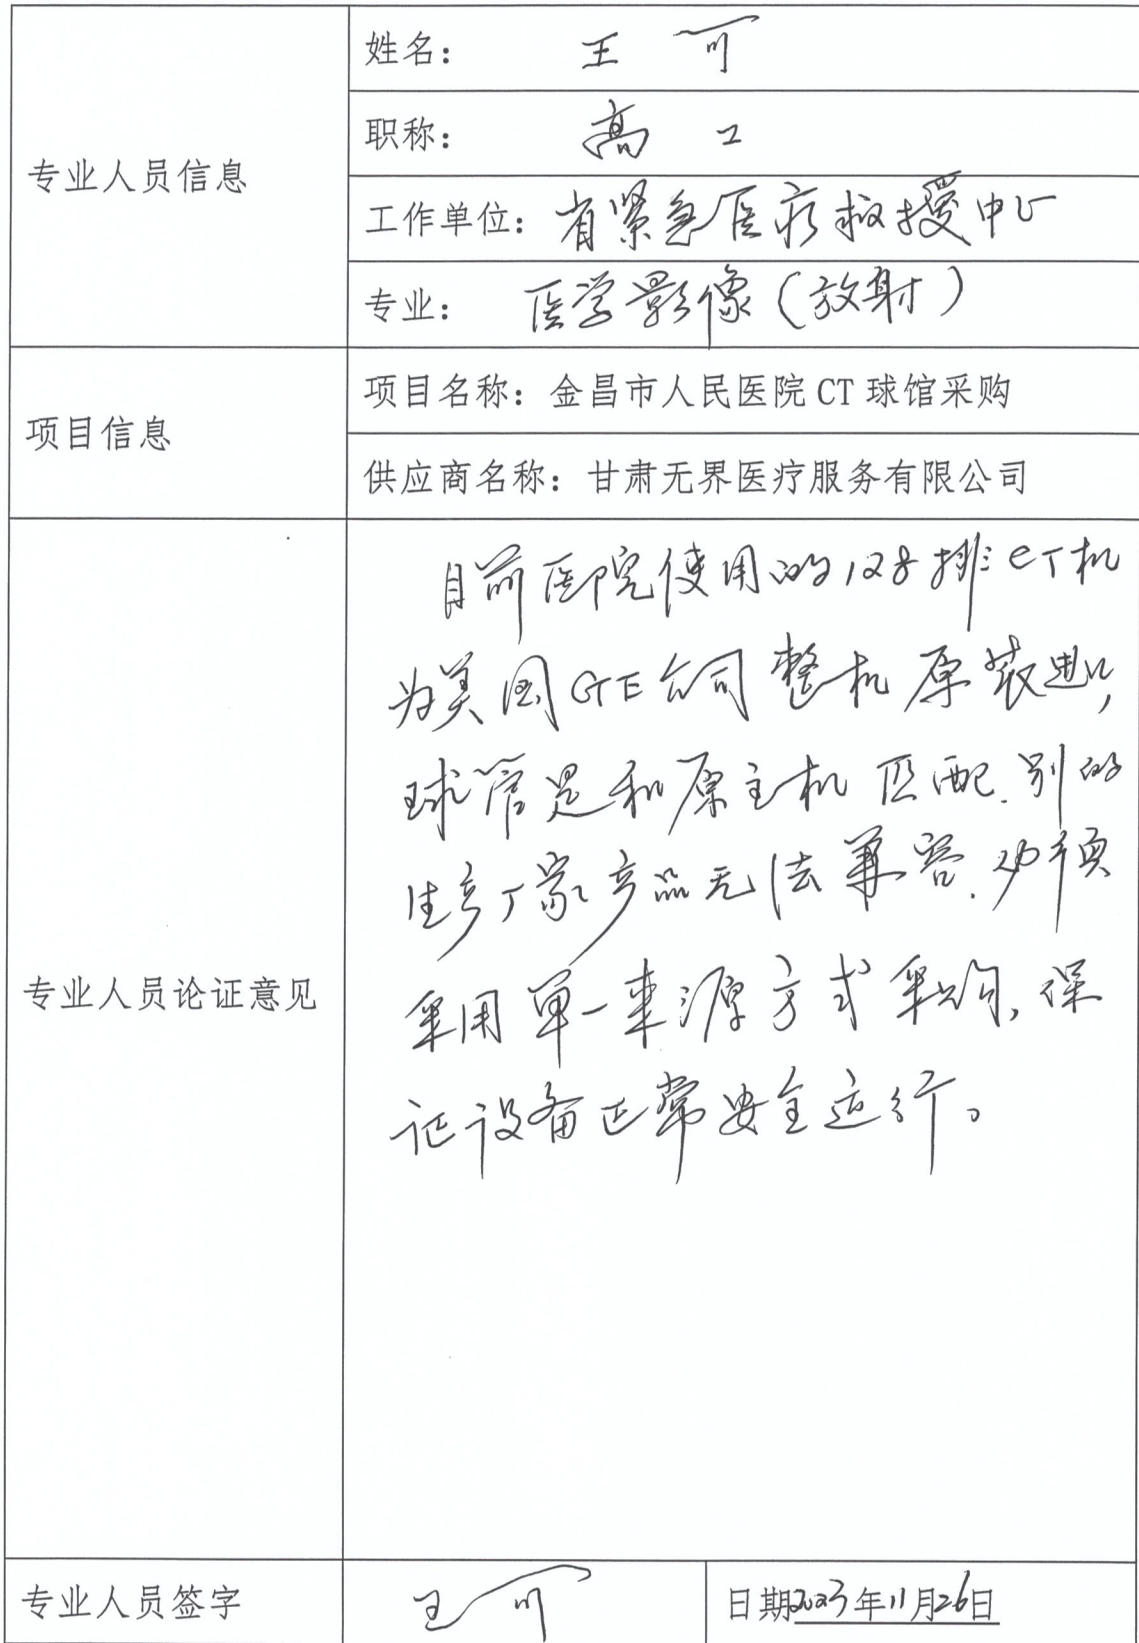 专业人员信息
姓名： 王可
职称： 高工
工作单位：省紧急医疗救援中心
专业： 医学影像（放射）
项目信息
项目名称：金昌市人民医院 CT 球馆采购
供应商名称：甘肃无界医疗服务有限公司
专业人员论证意见
目前医院使用的128排CT机
为美国GE公司整机原装进口,
球管是和原主机匹配.别的
生产厂家产品无法兼容.必须
采用单一来源方式采购,保
证设备正常安全运行。
专业人员签字 王可 日期2023年11月26日